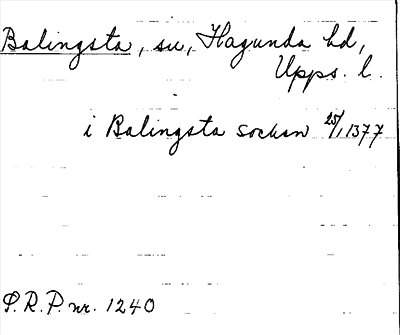 Balingsta, sn, Hagunda hd,
Upps. l.
i Balingsta sockun 25/1 1377
S.R.P. nr. 1240